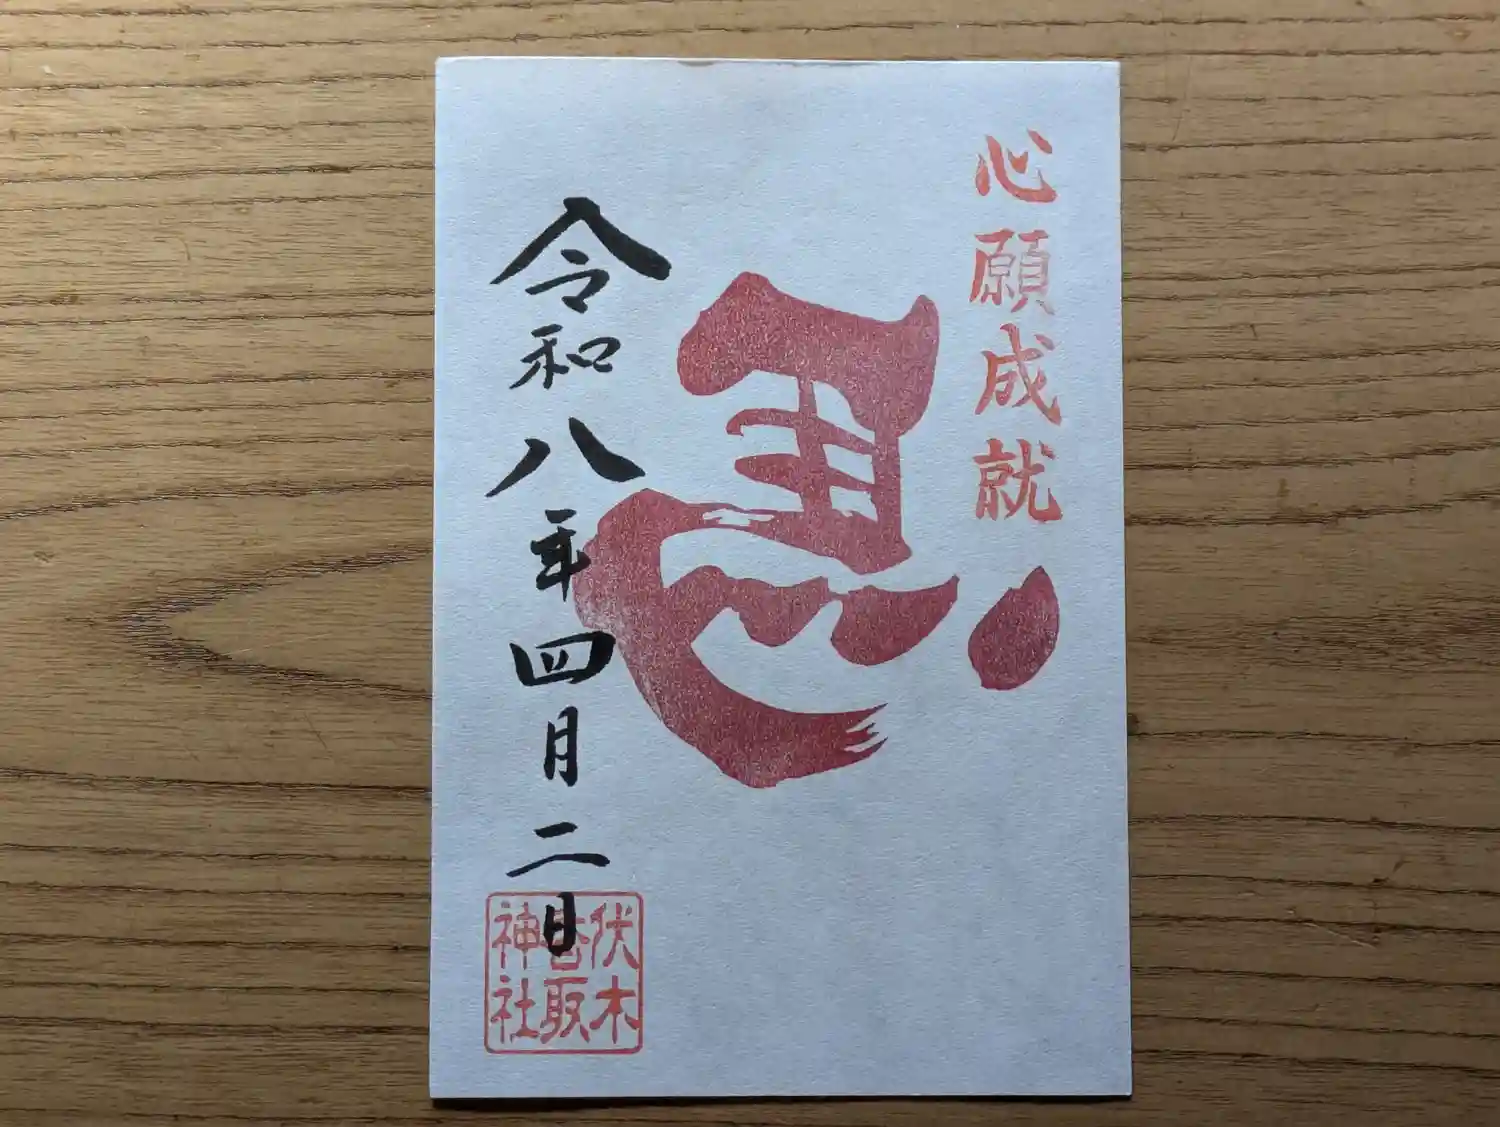 心願成就
令和八年四月二日
伏木
香取
神社